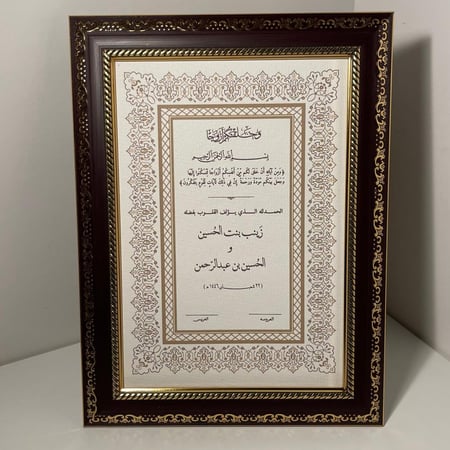 وخلقناكم أزواجا
بسم الله الرحمن الرحيم
﴿ وَمِنْ آيَاتِهِ أَنْ خَلَقَ لَكُم مِّنْ أَنفُسِكُمْ أَزْوَاجًا لِّتَسْكُنُوا إِلَيْهَا
وَجَعَلَ بَيْنَكُم مَّوَدَّةً وَرَحْمَةً إِنَّ فِي ذَٰلِكَ لَآيَاتٍ لِّقَوْمٍ يَتَفَكَّرُونَ ﴾
الحمدلله الذي يؤلف القلوب بفضله
زَينب بنت الحُسين
و
الحُسين بن عبدالرّحمن
( ٢٢ شعبان ١٤٤٦ هـ )
العروسه العريس